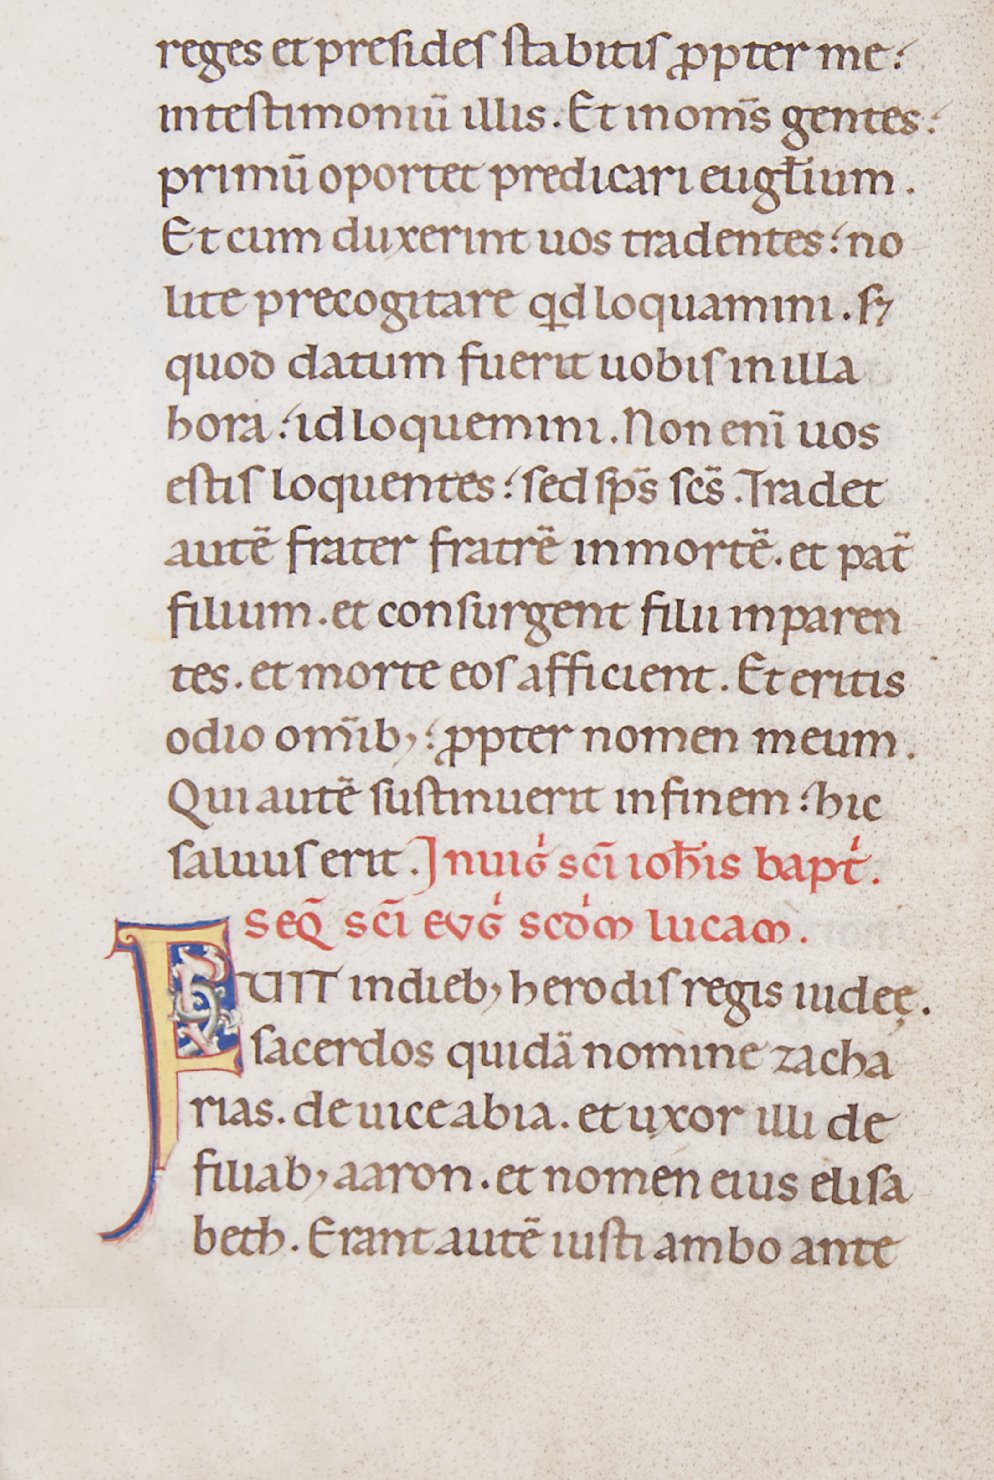 reges et presides stabitis ꝓpter me:
intestimoniū illis. Et inom̄s gentes:
primū oportet predicari eugl̄ium.
Et cum duxerint uos tradentes: no
lite precogitare qđ loquamini. sꝫ
quod datum fuerit uobis in illa
hora: id loquemini. Non eni̅ uos
estis loquentes: sed sps̄ scs̄. Tradet
autē frater fratrē inmortē. et pat̄
filium. et consurgent filii inparen
tes. et morte eos afficient. Et eritis
odio om̄ibꝫ: ꝓpter nomen meum.
Qui autē sustinuerit infinem: hic
saluus erit. In uig̓ sci̅ ioħis bapt̓.
seq̄ sci̅ eug̓ scd̓m lucam.
FUIT indiebꝫ herodis regis iudeę.
sacerdos quidā nomine zacha
rias. de uice abia. et uxor illi de
filiabꝫ aaron. et nomen eius elisa
beth. Erant autē iusti ambo ante